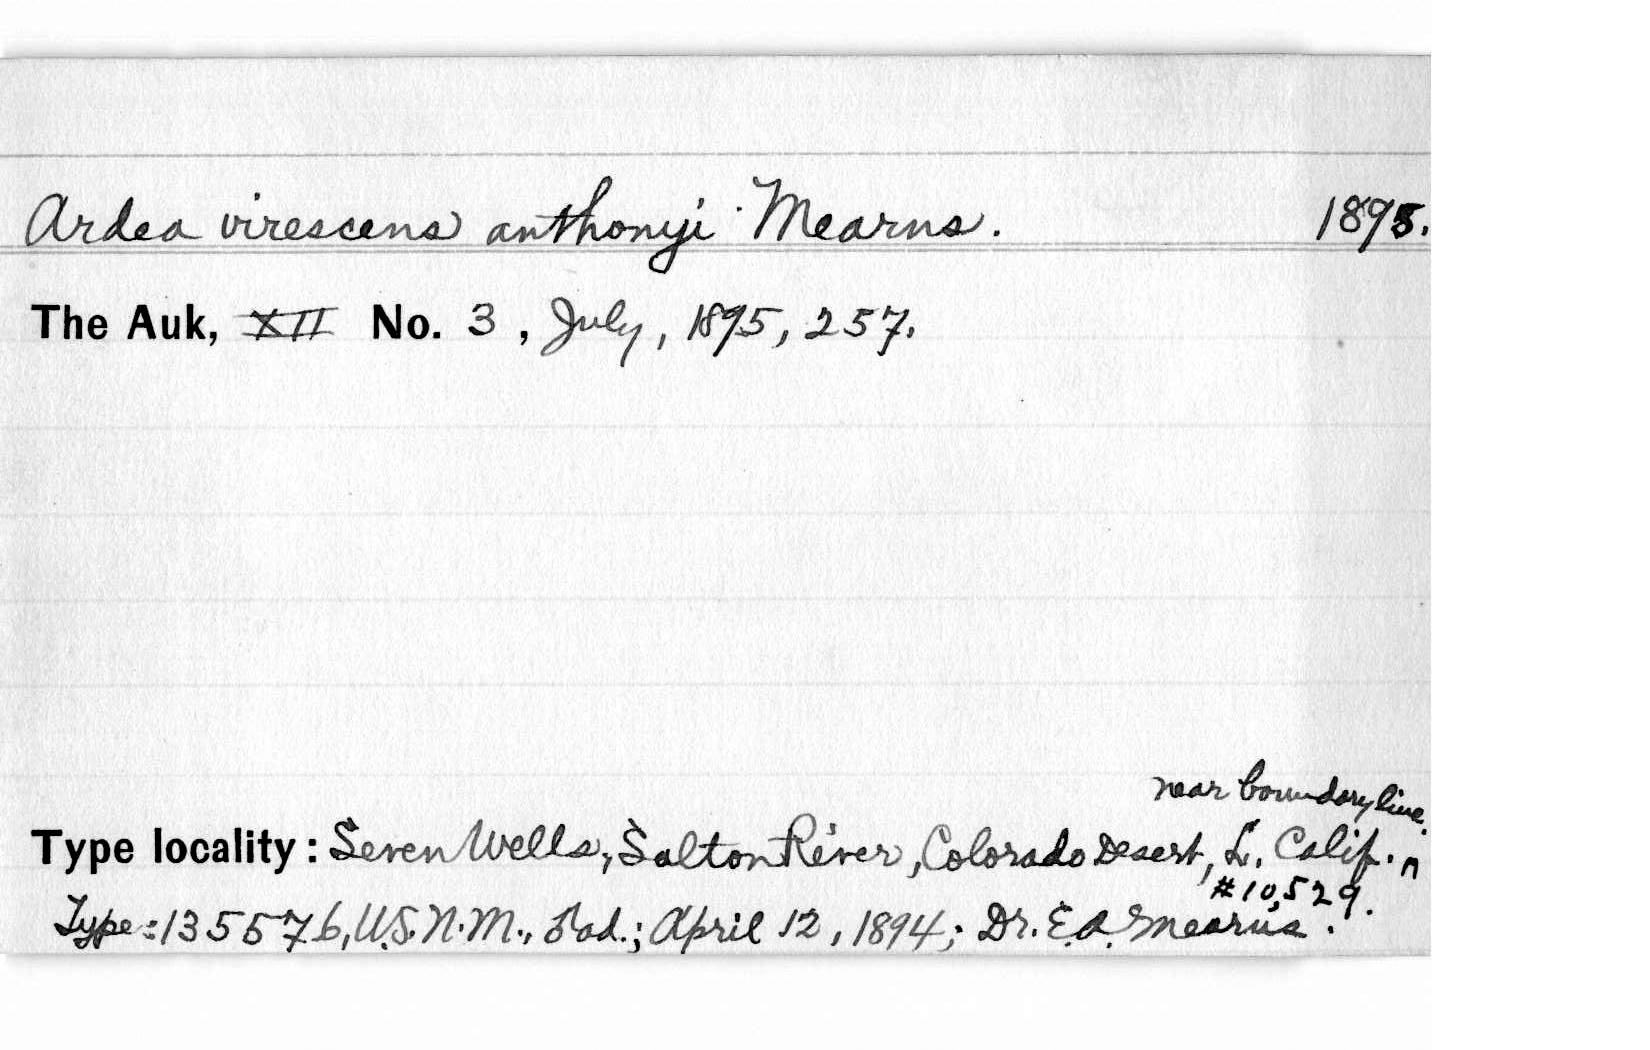 Ardea virescens anthonyi Mearns. 1895.
The Auk, XII No. 3, July, 1895, 257.
near boundary line.
Type locality: Seven Wells, Salton River, Colorado Desert, L. Calif.
#10,529.
Type: 135576, U.S.N.M., ad.; April 12, 1894; Dr. E.A. Mearns.